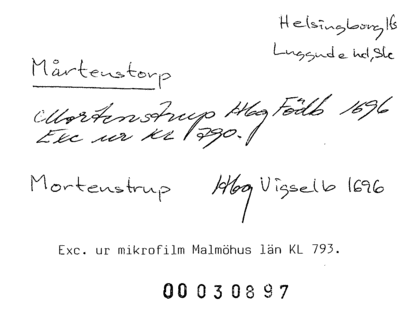 Helsingborg lfs
Luggude hd, Sk
Mårtenstorp
Mortenstrup Hbg Födb 1696
Exc ur KL 790.
Mortenstrup Hbg Vigselb 1696
Exc. ur mikrofilm Malmöhus län KL 793.
00030897